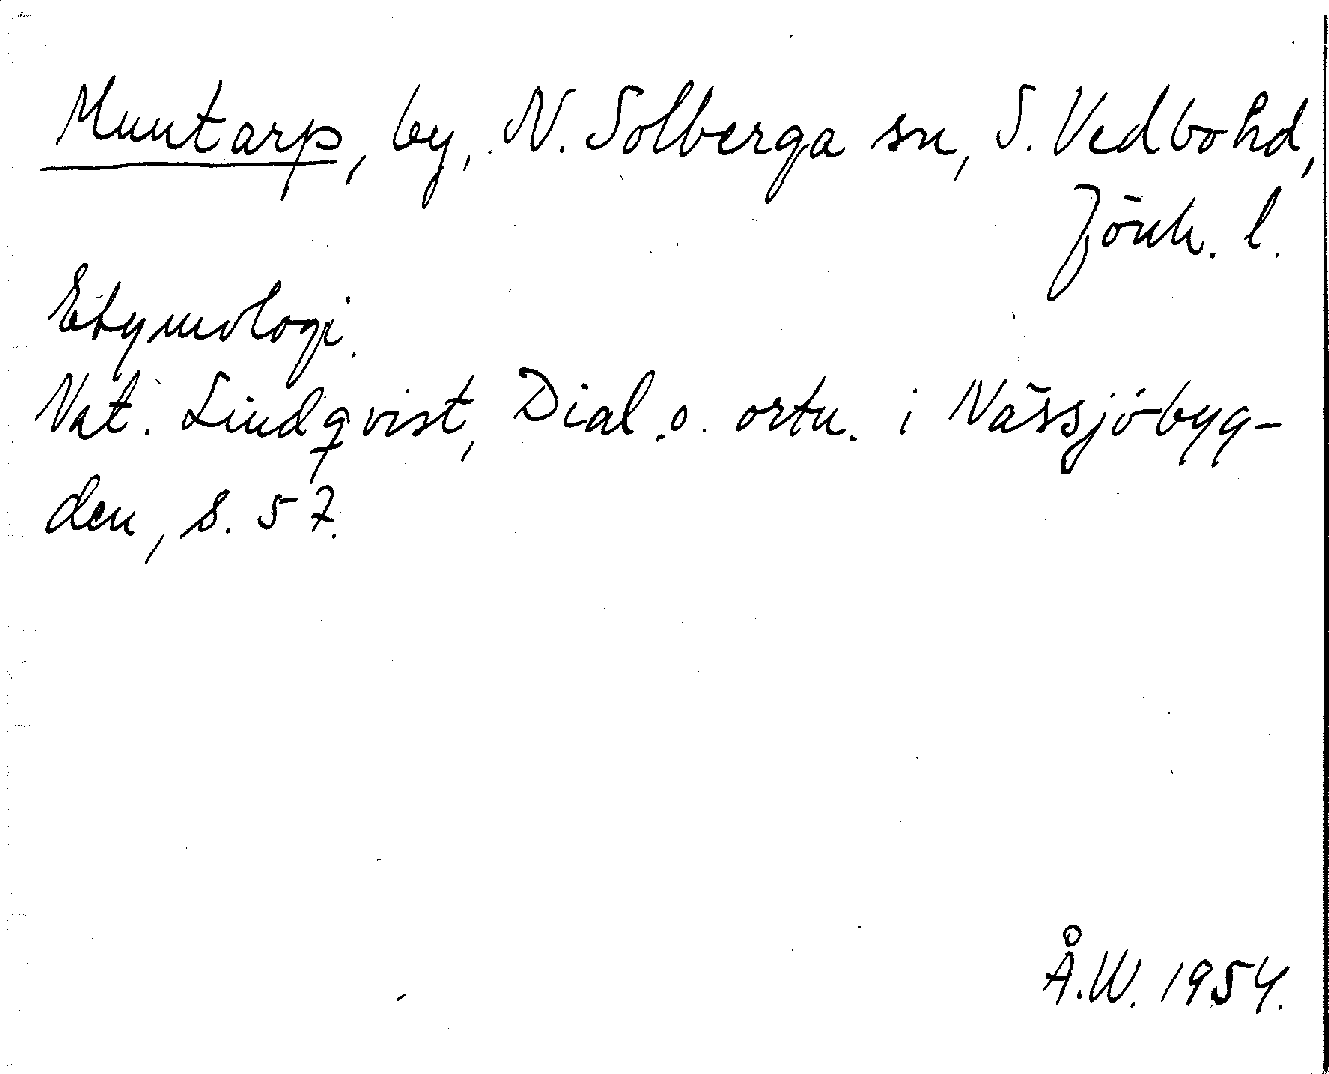 Muntarp, by, N. Solberga sn, S. Vedbo hd,
Jönk. l.
Etymologi.
Nat. Lindqvist, Dial. o. ortn. i Nässjöbyg-
den, s. 57.
Å.W. 1954.